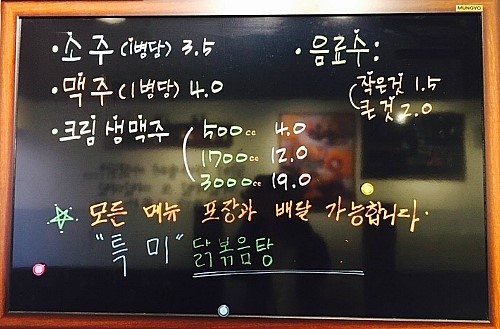 MUNGYO
· 소주 (1병당) 3.5
· 음료수:
작은것 1.5
큰것 2.0
· 맥주 (1병당) 4.0
· 크림 생맥주 500cc 4.0
1700cc 12.0
3000cc 19.0
☆ 모든 메뉴 포장과 배달 가능합니다.
"특미" 닭볶음탕